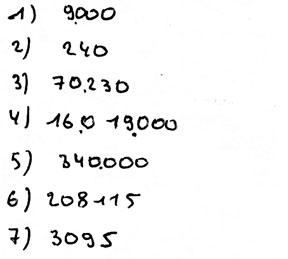 1) 9.000
2) 240
3) 70.230
4) 16.0 19.000
5) 340.000
6) 208115
7) 3095